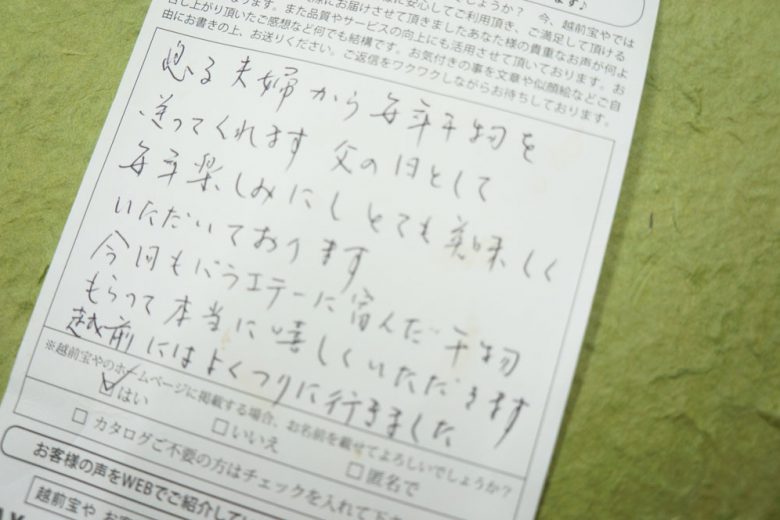 しょうか？ 今、越前宝やでは
安心してご利用頂き、ご満足して頂ける
にお届けさせて頂きましたあなた様の貴重なお声が何よ
召し上がり頂いたご感想など何でも結構です。お気付きの事を文章や似顔絵などご自
由にお書きの上、お送りください。ご返信をワクワクしながらお待ちしております。
る夫婦から毎年干物を
送ってくれます 父の日として
毎年楽しみにし とても美味しく
いただいております
今回もバラエテーに富んだ干物
もらって本当に嬉しくいただきます
越前にはよくつりに行きました
※越前宝やのホームページに掲載する場合、お名前を載せてよろしいでしょうか？
☑はい □いいえ □匿名で
□ カタログご不要の方はチェックを入れて下
お客様の声をWEBでご紹介してい
越前宝や お客